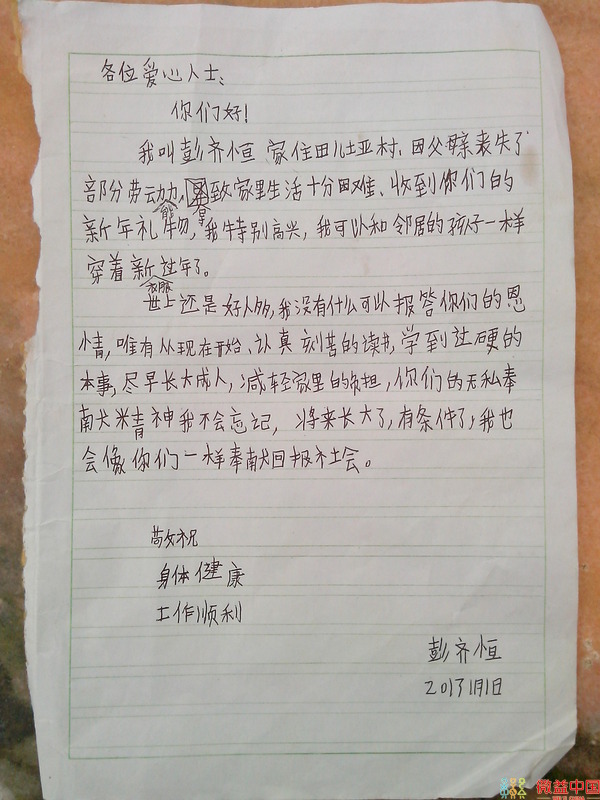 各位爱心人士:
你们好!
我叫彭齐恒 家住田儿垭村、因父母亲丧失了
部分劳动力,致家里生活十分困难、收到你们的
新年礼物,我特别高兴,我可以和邻居的孩子一样
穿着新衣服过年了。
世上还是好人多,我没有什么可以报答你们的恩
情,唯有从现在开始、认真刻苦的读书,学到过硬的
本事,尽早长大成人,减轻家里的负担,你们的无私奉
献精神我不会忘记,将来长大了,有条件了,我也
会像你们一样奉献回报社会。
敬祝
身体健康
工作顺利
彭齐恒
2017 1月1日
微益中国